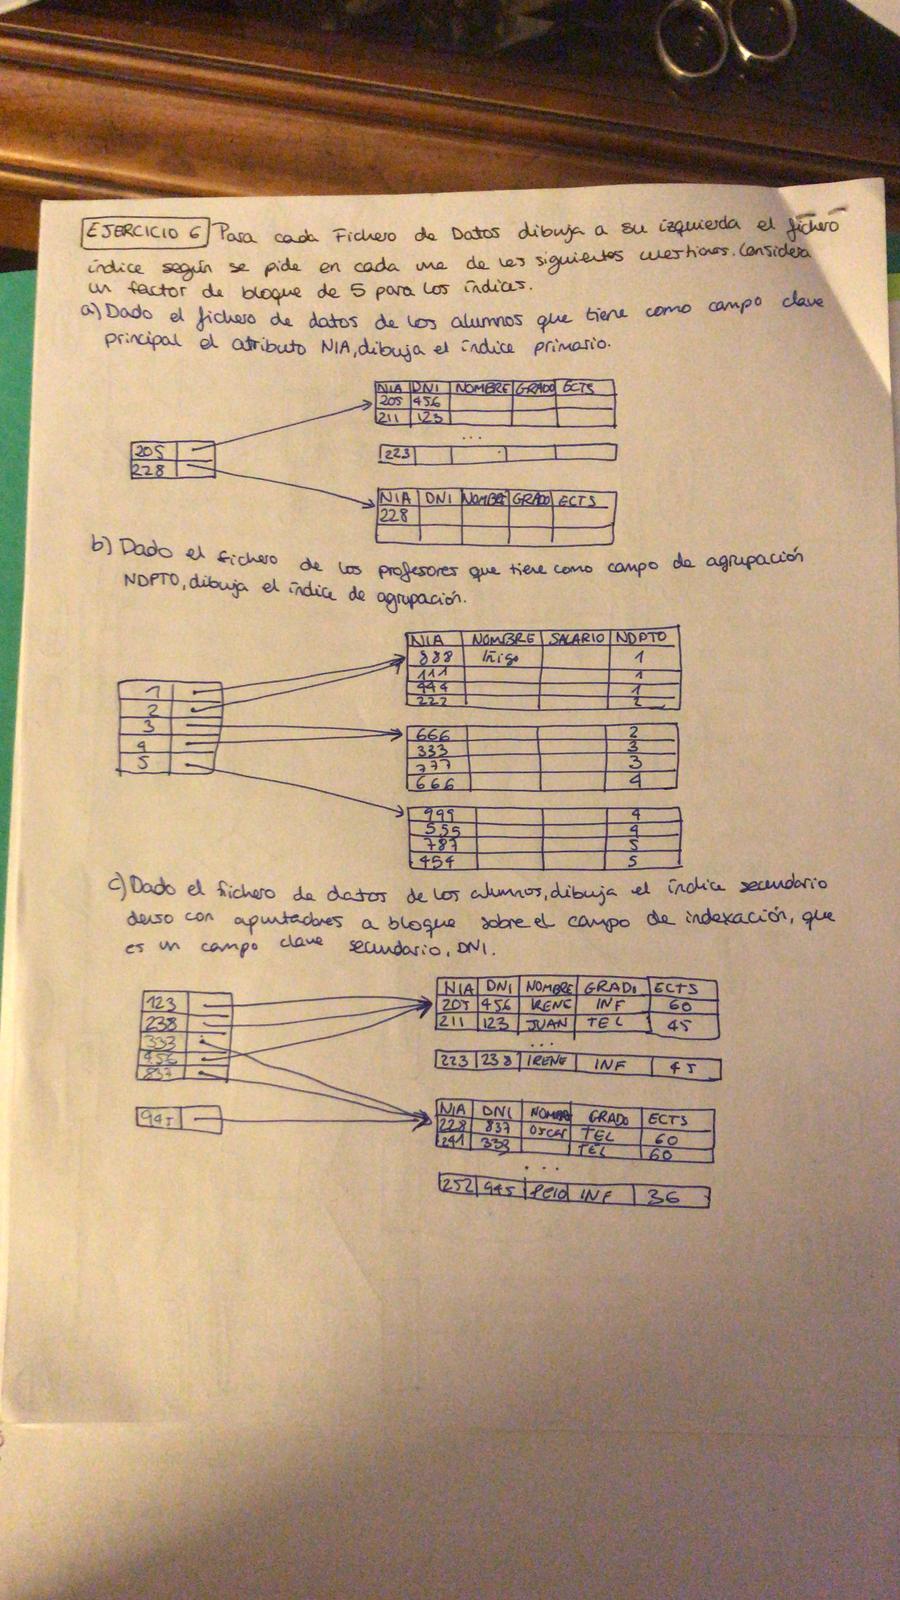 EJERCICIO 6 Para cada Fichero de Datos dibuja a su izquierda el fichero
índice según se pide en cada una de las siguientes cuestiones. Considera
un factor de bloque de 5 para los índices.
a) Dado el fichero de datos de los alumnos que tiene como campo clave
principal el atributo NIA, dibuja el índice primario.
NIA DNI NOMBRE GRADO ECTS
205 456
211 123
...
223
205
228
NIA DNI NOMBRE GRADO ECTS
228
b) Dado el fichero de los profesores que tiene como campo de agrupación
NDPTO, dibuja el índice de agrupación.
NIA NOMBRE SALARIO NDPTO
888 Iñigo 1
111 1
444 1
222 2
1
2
3
4
5
666 2
333 3
777 3
666 4
999 4
555 4
787 5
454 5
c) Dado el fichero de datos de los alumnos, dibuja el índice secundario
denso con apuntadores a bloque sobre el campo de indexación, que
es un campo clave secundario, DNI.
NIA DNI NOMBRE GRADO ECTS
205 456 IRENE INF 60
211 123 JUAN TEL 45
...
223 238 IRENE INF 45
123
238
333
456
837
945
NIA DNI NOMBRE GRADO ECTS
228 837 OSCAR TEL 60
241 333 TEL 60
...
252 945 PEIO INF 36